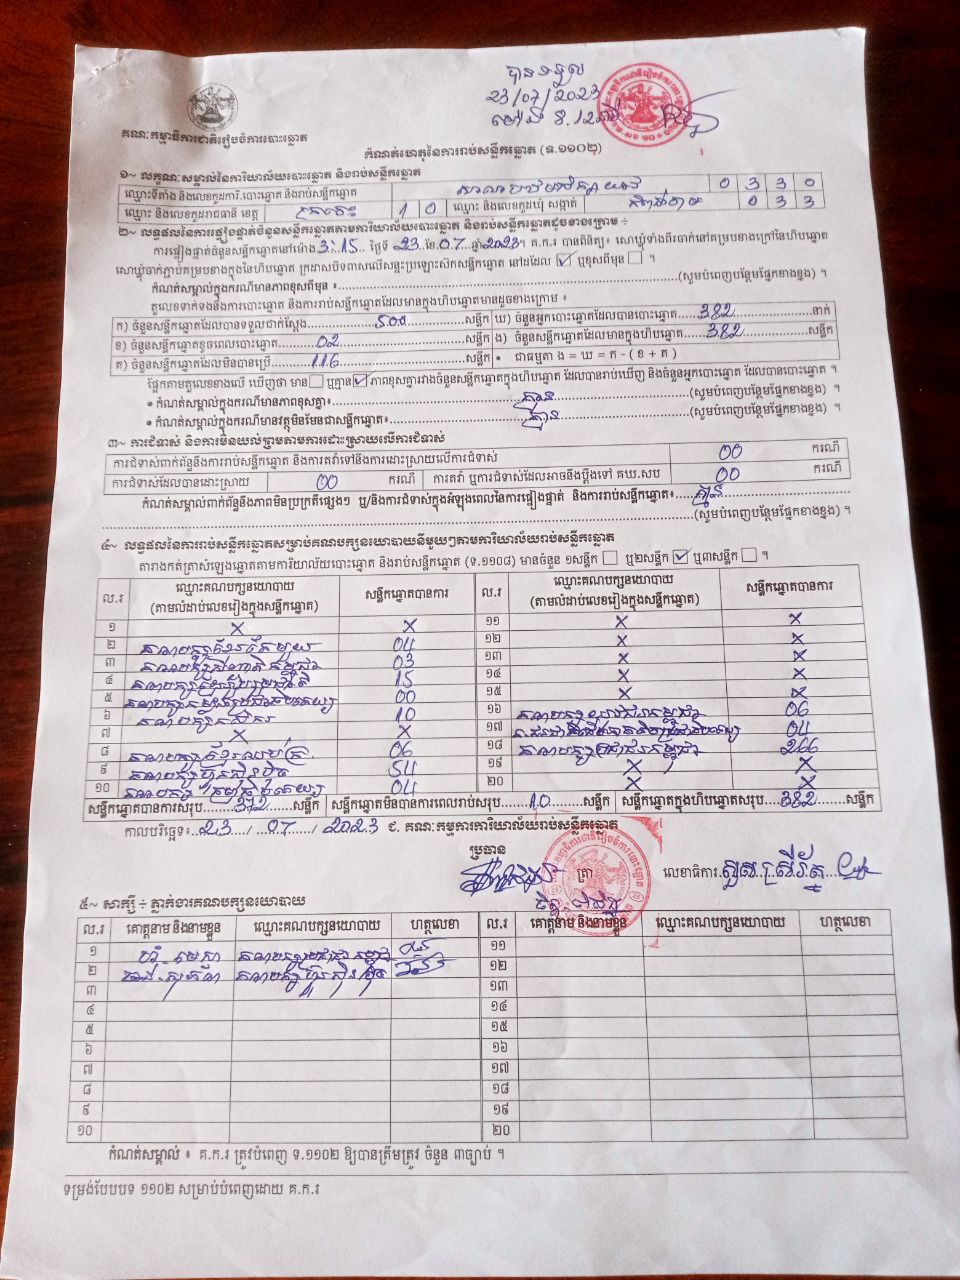 បានទទួល
23/07/2023
ម៉ោង 8.12
គណៈកម្មាធិការជាតិរៀបចំការបោះឆ្នោត
កំណត់ហេតុនៃការរាប់សន្លឹកឆ្នោត (ទ.១១០២)
១~ លក្ខណៈសម្គាល់នៃការិយាល័យបោះឆ្នោត និងរាប់សន្លឹកឆ្នោត
ឈ្មោះទីតាំង និងលេខកូដការិ.បោះឆ្នោត និងរាប់សន្លឹកឆ្នោត 0 3 3 0
ឈ្មោះ និងលេខកូដរាជធានី ខេត្ត ក្រចេះ 1 0 ឈ្មោះ និងលេខកូដឃុំ សង្កាត់ 0 3 3
២~ លទ្ធផលនៃការផ្ទៀងផ្ទាត់ចំនួនសន្លឹកឆ្នោតតាមការិយាល័យបោះឆ្នោត និងរាប់សន្លឹកឆ្នោតដូចខាងក្រោម ÷
ការផ្ទៀងផ្ទាត់ចំនួនសន្លឹកឆ្នោតនៅម៉ោង 3:15 ថ្ងៃទី 23 ខែ 07 ឆ្នាំ 2023។ គ.ក.រ បានពិនិត្យ៖ សោឃ្មុំទាំងពីរចាក់នៅគម្របខាងក្រៅនៃហិបឆ្នោត
សោឃ្មុំចាក់ភ្ជាប់គម្របខាងក្នុងនៃហិបឆ្នោត ក្រដាសបិទពាសលើសន្ទះប្រឡោះសិកសន្លឹកឆ្នោត នៅដដែល ☑ ឬខុសពីមុន ☐ ។
កំណត់សម្គាល់ក្នុងករណីមានភាពខុសពីមុន ៖ (សូមបំពេញបន្ថែមផ្នែកខាងខ្នង) ។
តួលេខទាក់ទងនឹងការបោះឆ្នោត និងការរាប់សន្លឹកឆ្នោតដែលមានក្នុងហិបឆ្នោតមានដូចខាងក្រោម ៖
ក) ចំនួនសន្លឹកឆ្នោតដែលបានទទួលជាក់ស្តែង 500 សន្លឹក ឃ) ចំនួនអ្នកបោះឆ្នោតដែលបានបោះឆ្នោត 382 នាក់
ខ) ចំនួនសន្លឹកឆ្នោតខូចពេលបោះឆ្នោត 02 សន្លឹក ង) ចំនួនសន្លឹកឆ្នោតដែលមានក្នុងហិបឆ្នោត 382 សន្លឹក
គ) ចំនួនសន្លឹកឆ្នោតដែលមិនបានប្រើ 116 សន្លឹក • ជាធម្មតា ង = ឃ = ក - ( ខ + គ )
ផ្អែកតាមតួលេខខាងលើ ឃើញថា មាន ☐ ឬគ្មាន ☑ ភាពខុសគ្នារវាងចំនួនសន្លឹកឆ្នោតក្នុងហិបឆ្នោត ដែលបានរាប់ឃើញ និងចំនួនអ្នកបោះឆ្នោត ដែលបានបោះឆ្នោត ។
• កំណត់សម្គាល់ក្នុងករណីមានភាពខុសគ្នា៖ គ្មាន (សូមបំពេញបន្ថែមផ្នែកខាងខ្នង) ។
• កំណត់សម្គាល់ក្នុងករណីមានវត្ថុមិនមែនជាសន្លឹកឆ្នោត៖ គ្មាន (សូមបំពេញបន្ថែមផ្នែកខាងខ្នង) ។
៣~ ការជំទាស់ និងការមិនយល់ព្រមតាមការដោះស្រាយលើការជំទាស់
ការជំទាស់ពាក់ព័ន្ធនឹងការរាប់សន្លឹកឆ្នោត និងការតវ៉ាទៅនឹងការដោះស្រាយលើការជំទាស់ 00 ករណី
ការជំទាស់ដែលបានដោះស្រាយ 00 ករណី ការតវ៉ា ឬការជំទាស់ដែលអាចនឹងប្តឹងទៅ គឃ.សប 00 ករណី
កំណត់សម្គាល់ពាក់ព័ន្ធនឹងភាពមិនប្រក្រតីផ្សេងៗ ឬ/និងការជំទាស់ក្នុងអំឡុងពេលនៃការផ្ទៀងផ្ទាត់ និងការរាប់សន្លឹកឆ្នោត៖ គ្មាន
(សូមបំពេញបន្ថែមផ្នែកខាងខ្នង) ។
៤~ លទ្ធផលនៃការរាប់សន្លឹកឆ្នោតសម្រាប់គណបក្សនយោបាយនីមួយៗតាមការិយាល័យបោះឆ្នោត និងរាប់សន្លឹកឆ្នោត
តារាងកត់ត្រាសំឡេងឆ្នោតតាមការិយាល័យបោះឆ្នោត និងរាប់សន្លឹកឆ្នោត (ទ.១១០៨) មានចំនួន ១សន្លឹក ☐ ឬ២សន្លឹក ☑ ឬ៣សន្លឹក ☐ ។
ល.រ ឈ្មោះគណបក្សនយោបាយ សន្លឹកឆ្នោតបានការ ល.រ ឈ្មោះគណបក្សនយោបាយ សន្លឹកឆ្នោតបានការ
(តាមលំដាប់លេខរៀងក្នុងសន្លឹកឆ្នោត) (តាមលំដាប់លេខរៀងក្នុងសន្លឹកឆ្នោត)
១ X X ១១ X X
២ គណបក្សខ្មែរតែមួយ 04 ១២ X X
៣ 03 ១៣ X X
៤ 15 ១៤ X X
៥ 00 ១៥ X X
៦ គណបក្សកសិករ 10 ១៦ 06
៧ X X ១៧ 04
៨ គណបក្សខ្មែរឈប់ក្រ 06 ១៨ គណបក្សប្រជាជនកម្ពុជា 266
៩ គណបក្សហ៊្វុនស៊ិនប៉ិច 54 ១៩ X X
១០ 04 ២០ X X
សន្លឹកឆ្នោតបានការសរុប 372 សន្លឹក សន្លឹកឆ្នោតមិនបានការពេលរាប់សរុប 10 សន្លឹក សន្លឹកឆ្នោតក្នុងហិបឆ្នោតសរុប 382 សន្លឹក
កាលបរិច្ឆេទ៖ 23 / 07 / 2023 ជ. គណៈកម្មការការិយាល័យរាប់សន្លឹកឆ្នោត
ប្រធាន
ត្រា លេខាធិការ
៥~ សាក្សី ÷ ភ្នាក់ងារគណបក្សនយោបាយ
ល.រ គោត្តនាម និងនាមខ្លួន ឈ្មោះគណបក្សនយោបាយ ហត្ថលេខា ល.រ គោត្តនាម និងនាមខ្លួន ឈ្មោះគណបក្សនយោបាយ ហត្ថលេខា
១ គណបក្សប្រជាជនកម្ពុជា ១១
២ គណបក្សហ៊្វុនស៊ិនប៉ិច ១២
៣ ១៣
៤ ១៤
៥ ១៥
៦ ១៦
៧ ១៧
៨ ១៨
៩ ១៩
១០ ២០
កំណត់សម្គាល់ ៖ គ.ក.រ ត្រូវបំពេញ ទ.១១០២ ឱ្យបានត្រឹមត្រូវ ចំនួន ៣ច្បាប់ ។
ទម្រង់បែបបទ ១១០២ សម្រាប់បំពេញដោយ គ.ក.រ